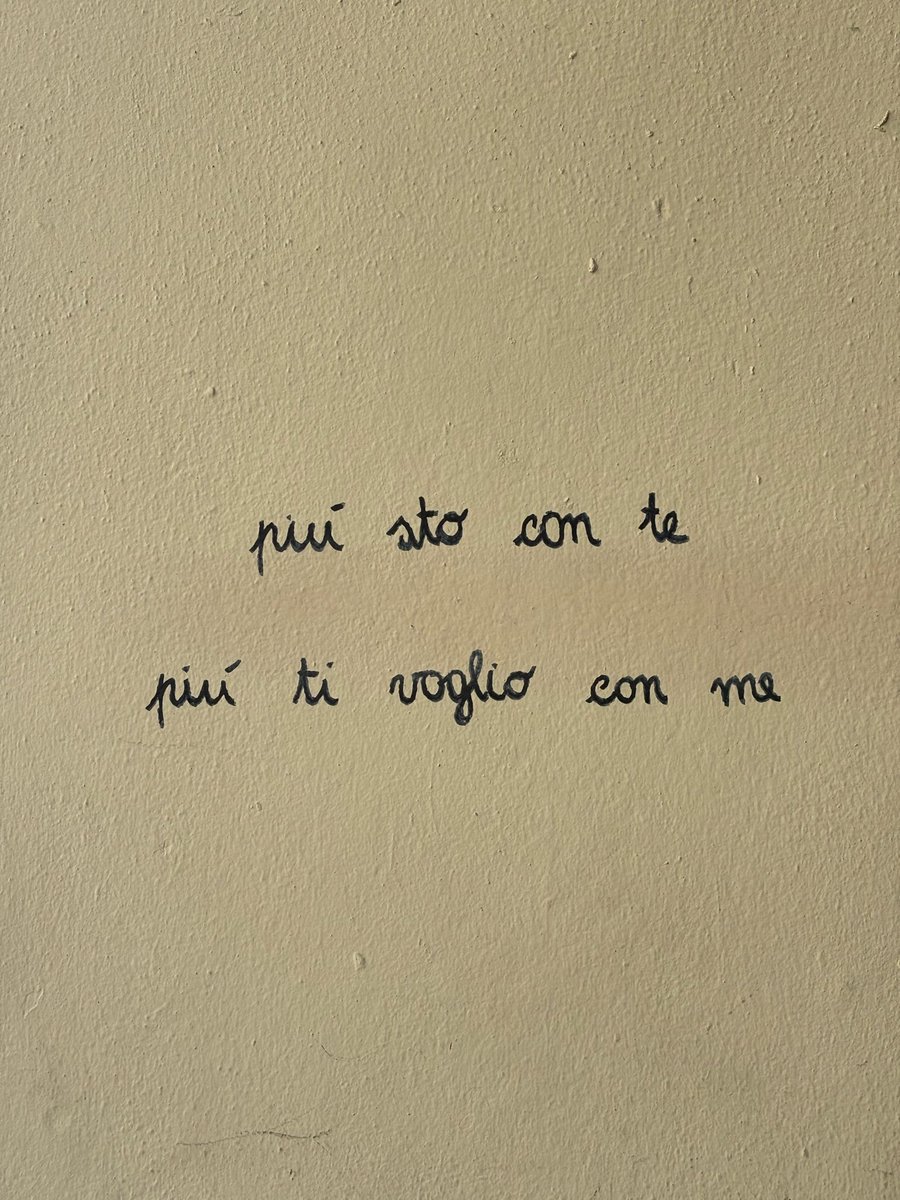 piú sto con te
piú ti voglio con me